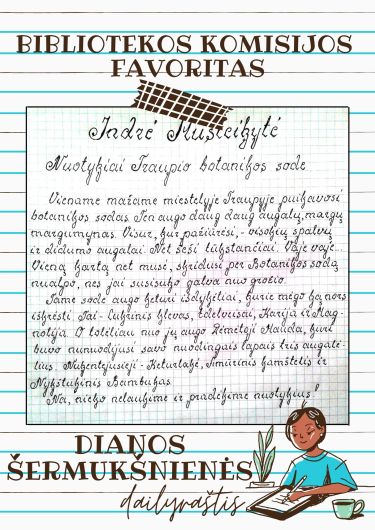 BIBLIOTEKOS KOMISIJOS
FAVORITAS
Indrė Mušteikytė
Nuotykiai Traupio botanikos sode
Viename mažame miestelyje Traupyje puikavosi
botanikos sodas. Ten augo daug daug augalų, margų
margumynas. Visur, kur pažiūrėsi, - visokių spalvų
ir didumo augalai. Net šeši tūkstančiai. Vaje vaje...
Vieną kartą net musė, skridusi per Botanikos sodą,
nualpo, nes jai susisuko galva nuo grožio.
Tame sode augo keturi išdykėliai, kurie mėgo ką nors
iškrėsti. Tai - Cukrinis klevas, Edelveisai, Karija ir Mag-
nolija. O toliau nuo jų augo Žemėtoji Mailda, kuri
buvo nunuodijusi savo nuodingais lapais tris augalė-
lius. Nukentėjusieji - Keturlapė, Smiltinis šamštelis ir
Nykštukinis Bambukas.
Na, nieko nelaukime ir pradėkime nuotykius!
DIANOS
ŠERMUKŠNIENĖS
dailyraštis